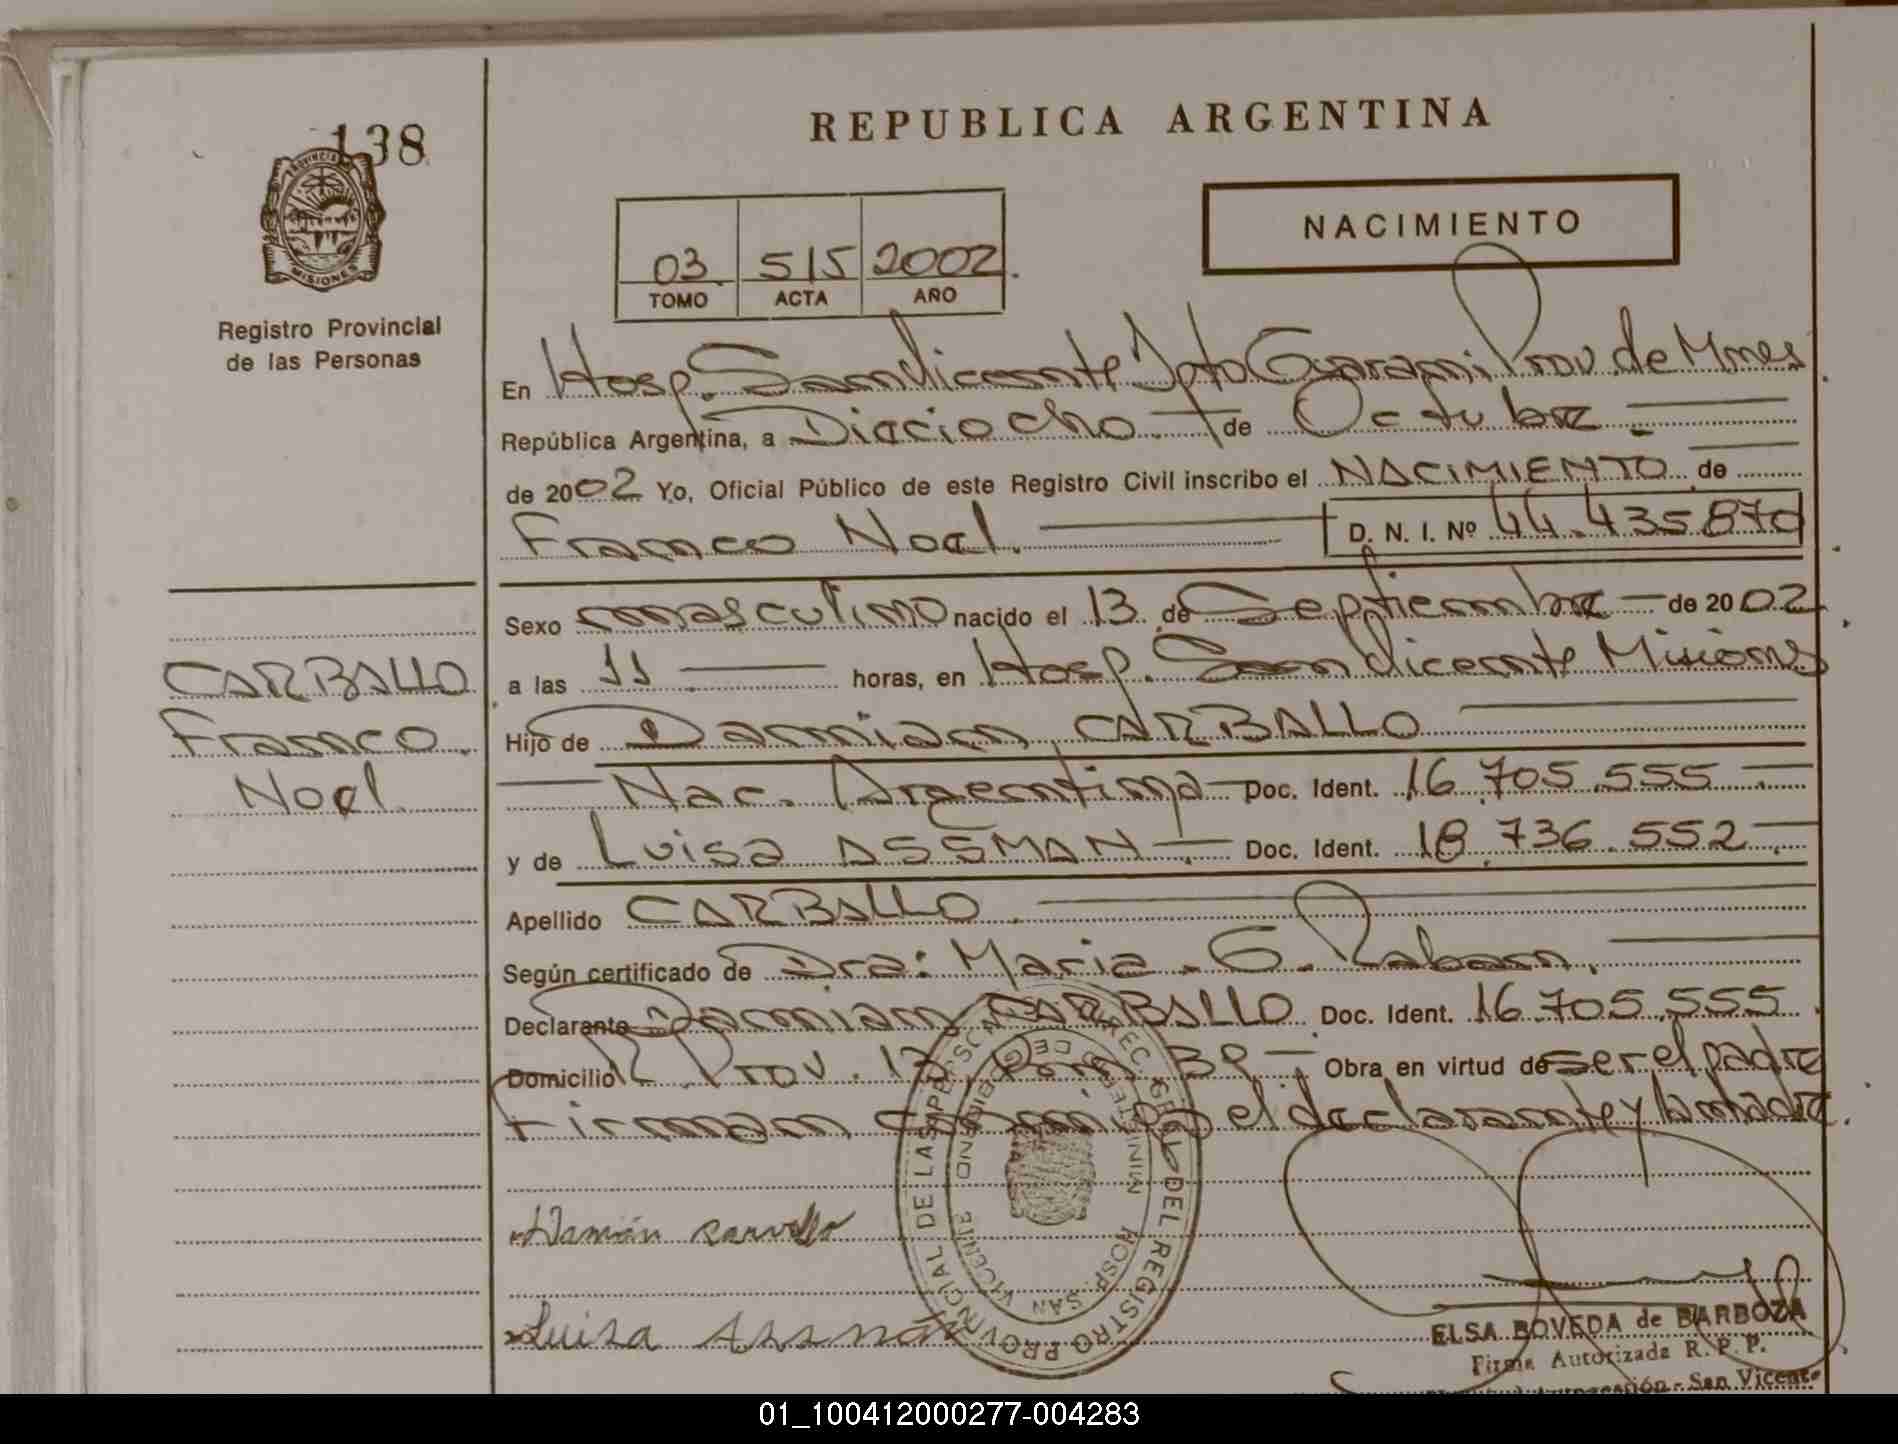 138
PROVINCIA
MISIONES
Registro Provincial
de las Personas
REPUBLICA ARGENTINA
03 515 2002
TOMO ACTA AÑO
NACIMIENTO
En Hosp. San Vicente Dpto Guarani Prov. de Mnes
República Argentina, a Dieciocho de Octubre
de 2002 Yo, Oficial Público de este Registro Civil inscribo el NACIMIENTO de
Franco Noel. D. N. I. Nº 44.435870
Sexo masculino nacido el 13 de Septiembre de 2002
a las 11 horas, en Hosp. San Vicente Misiones
Hijo de Damian CARBALLO
Nac. Argentina Doc. Ident. 16.705.555
y de Luisa ASSMAN Doc. Ident. 18.736.552
Apellido CARBALLO
Según certificado de Dra: Maria. G. Raban.
Declarante Damian CARBALLO Doc. Ident. 16.705.555
Domicilio R. Prov. 13 Km 39 Obra en virtud de ser el padre
Firman conmigo el declarante y la madre.
CARBALLO
Franco
Noel
Damián carvallo
Luisa Assmán
REGISTRO PROVINCIAL DE LAS PERSONAS
HOSP. SAN VICENTE
ELSA BOVEDA de BARBOZA
Firma Autorizada R. P. P.
San Vicente
01_100412000277-004283